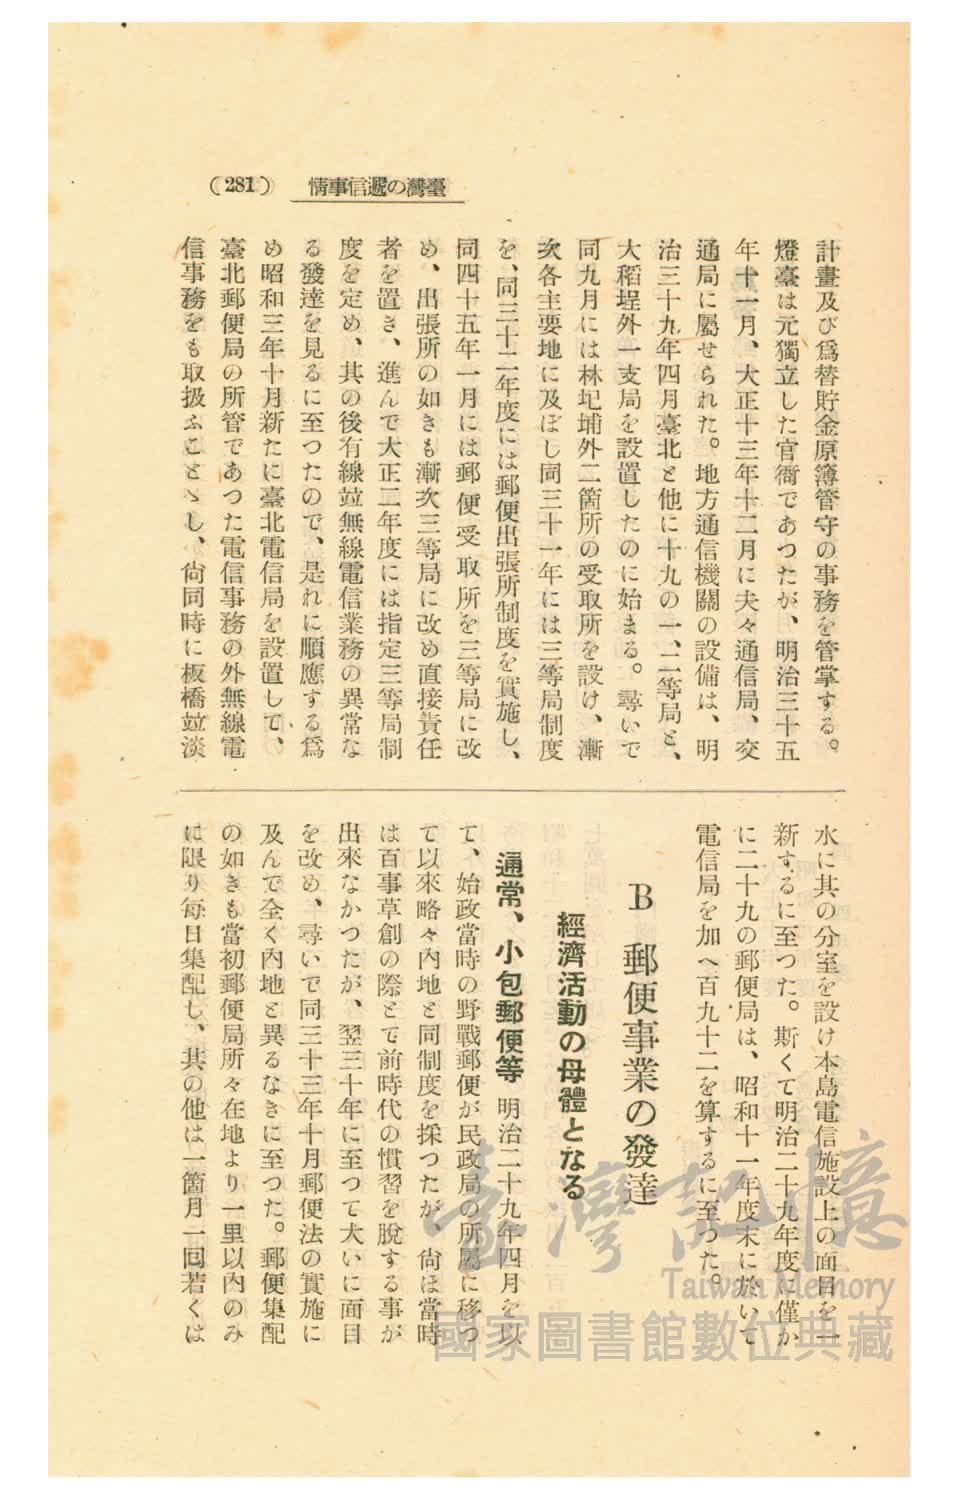 臺灣の遞信事情
（281）
計畫及び爲替貯金原簿管守の事務を管掌する。
燈臺は元獨立した官衙であつたが、明治三十五
年十一月、大正十三年十二月に夫々通信局、交
通局に屬せられた。地方通信機關の設備は、明
治三十九年四月臺北と他に十九の一、二等局と、
大稻埕外一支局を設置したのに始まる。尋いで
同九月には林圮埔外二箇所の受取所を設け、漸
次各主要地に及ぼし同三十一年には三等局制度
を、同三十二年度には郵便出張所制度を實施し、
同四十五年一月には郵便受取所を三等局に改
め、出張所の如きも漸次三等局に改め直接責任
者を置き、進んで大正二年度には指定三等局制
度を定め、其の後有線竝無線電信業務の異常な
る發達を見るに至つたので、是れに順應する爲
め昭和三年十月新たに臺北電信局を設置して、
臺北郵便局の所管であつた電信事務の外無線電
信事務をも取扱ふことゝし、尙同時に板橋竝淡
水に其の分室を設け本島電信施設上の面目を一
新するに至つた。斯くて明治二十九年度に僅か
に二十九の郵便局は、昭和十一年度末に於いて
電信局を加へ百九十二を算するに至つた。
B 郵便事業の發達
經濟活動の母體となる
通常、小包郵便等 明治二十九年四月を以
て、始政當時の野戰郵便が民政局の所屬に移つ
て以來略々內地と同制度を採つたが、尙ほ當時
は百事草創の際とて前時代の慣習を脫する事が
出來なかつたが、翌三十年に至つて大いに面目
を改め、尋いで同三十三年十月郵便法の實施に
及んで全く內地と異るなきに至つた。郵便集配
の如きも當初郵便局所々在地より一里以內のみ
に限り每日集配し、其の他は一箇月一回若くは
臺灣記憶
Taiwan Memory
國家圖書館數位典藏